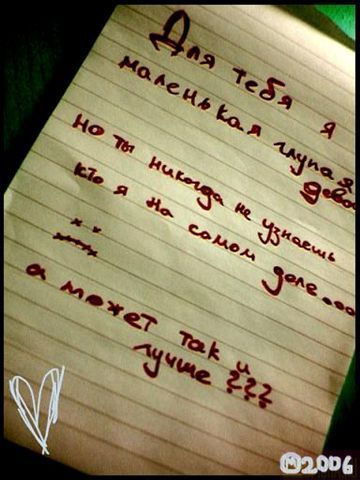 Для тебя я
маленькая глупая
дево
но ты никогда не узнаешь
кто я на самом деле...
а может так и
лучше ???
©2006